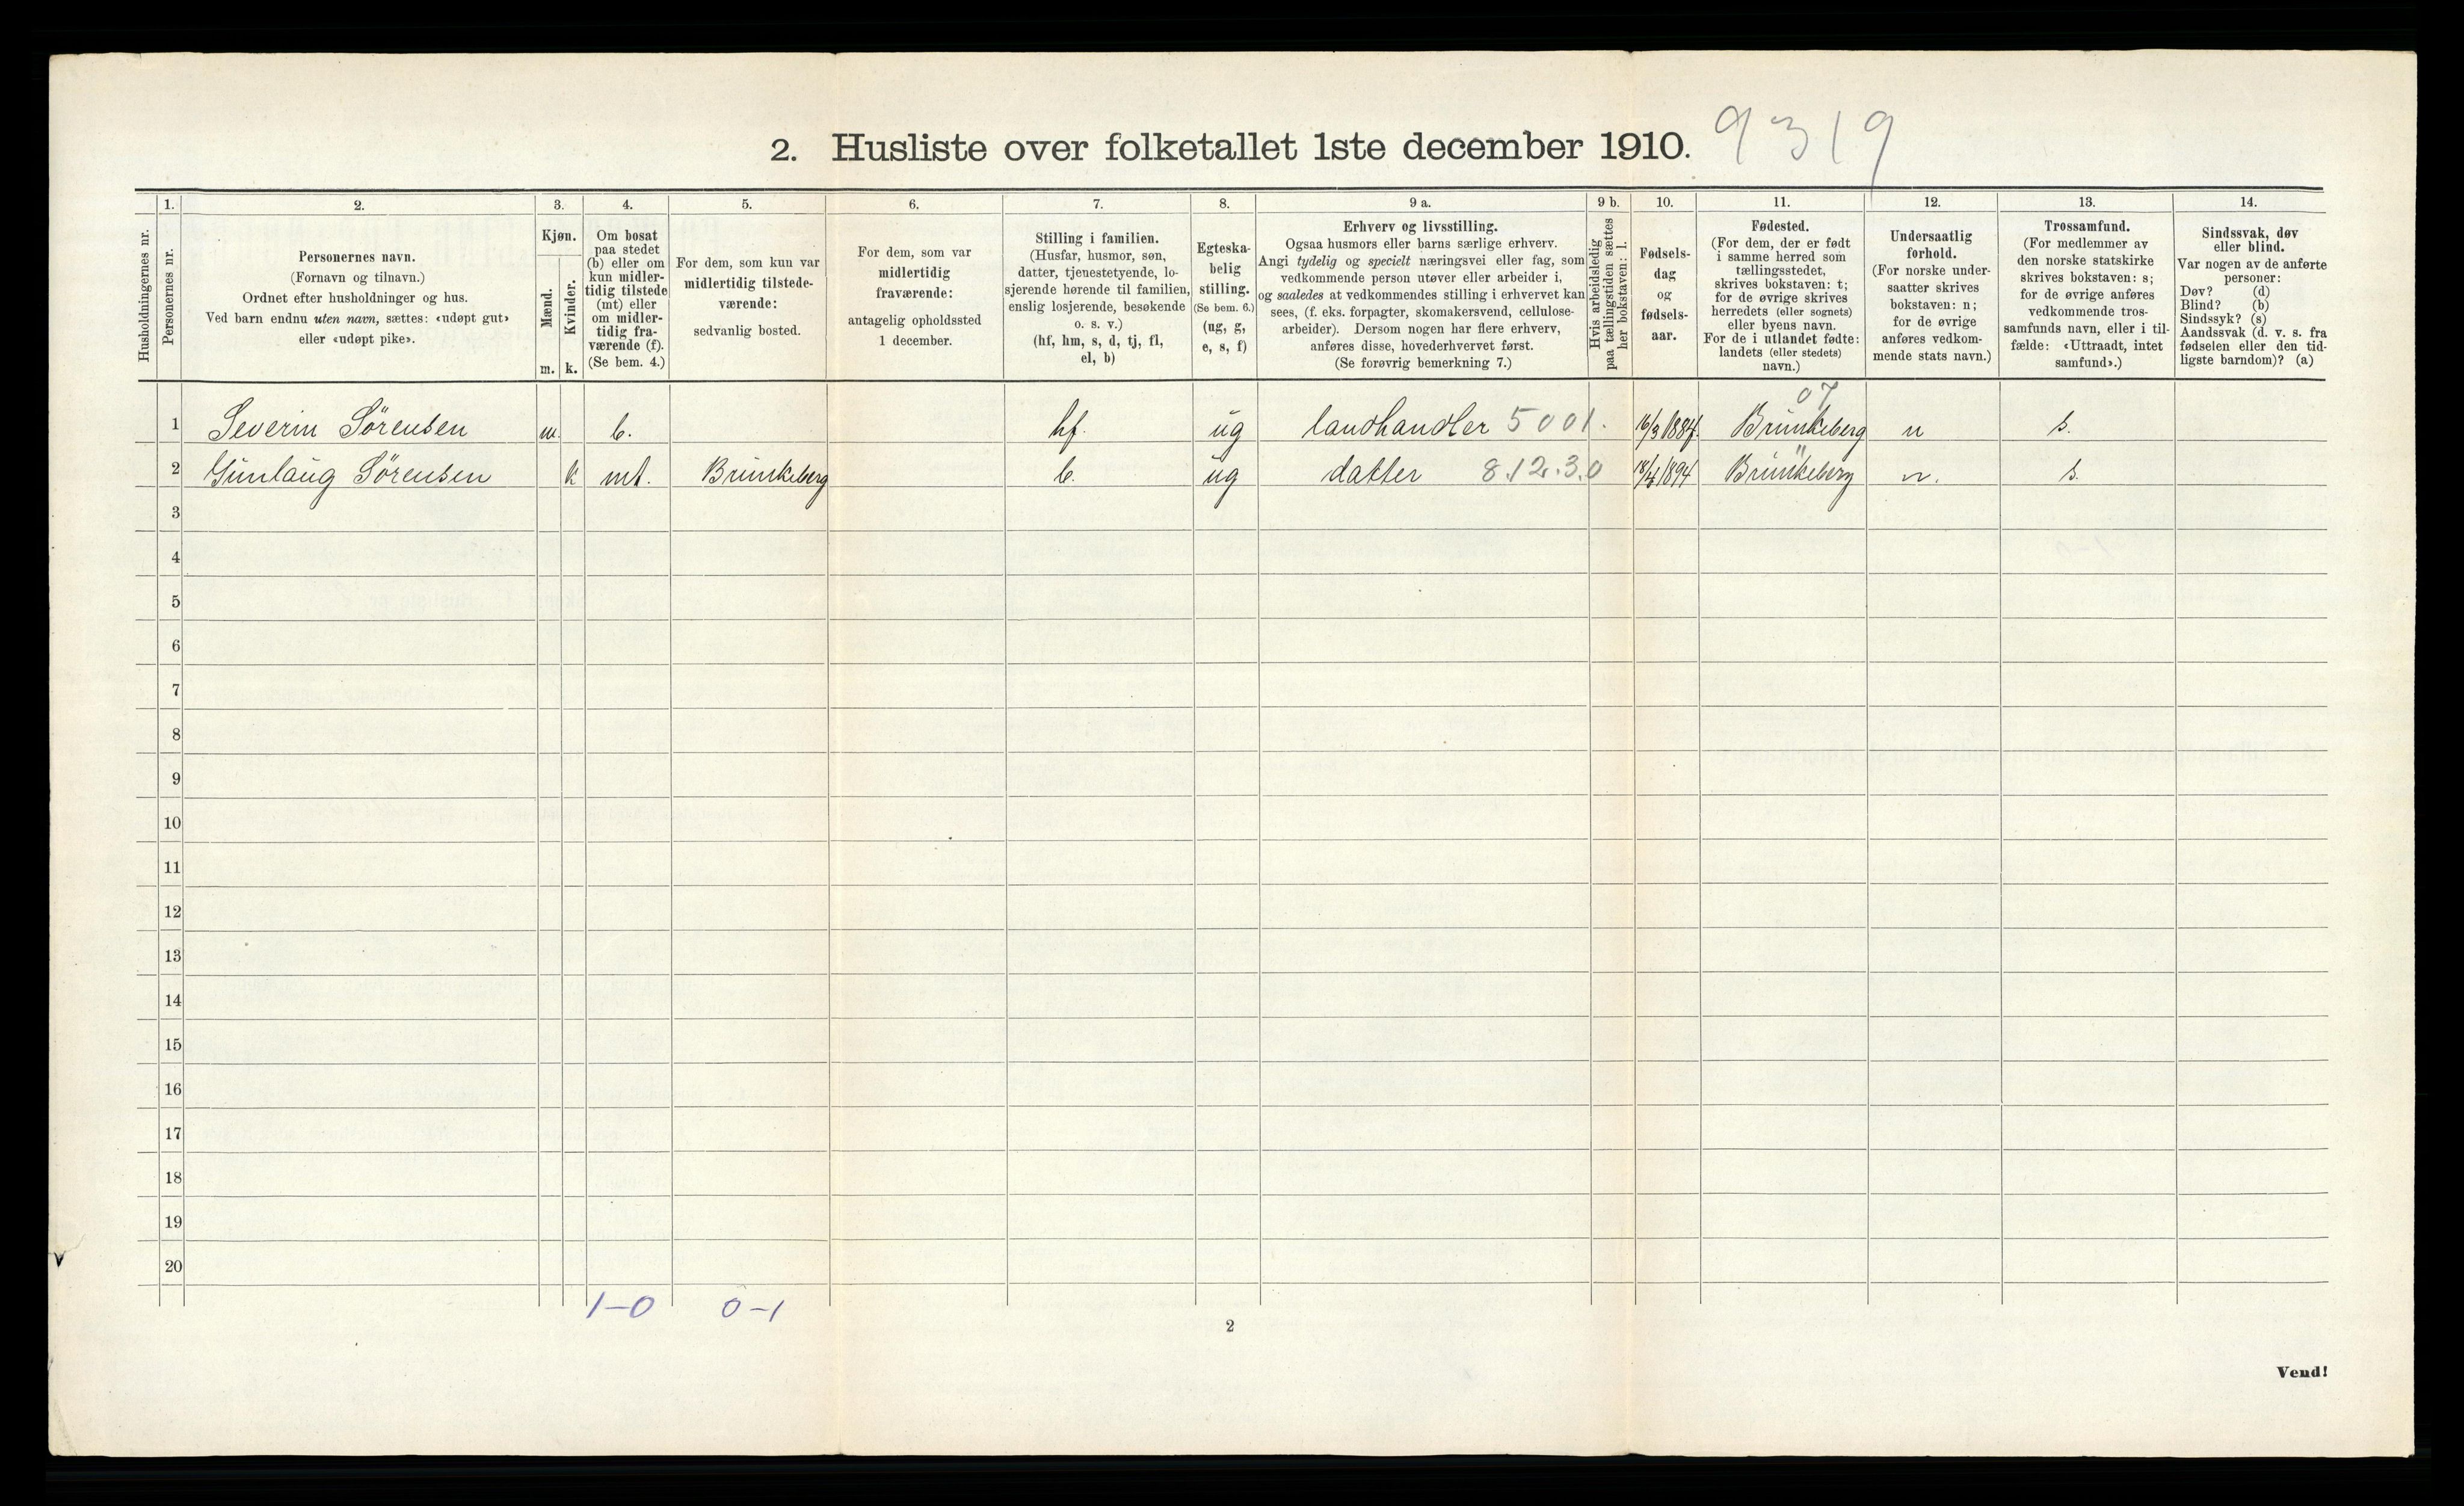 2. Husliste over folketallet 1ste december 1910. 9319
1. 2. 3. 4. 5. 6. 7. 8. 9 a. 9 b. 10. 11. 12. 13. 14.
Husholdningernes nr.
Personernes nr.
Personernes navn.
(Fornavn og tilnavn.)
Ordnet efter husholdninger og hus.
Ved barn endnu uten navn, sættes: «udøpt gut»
eller «udøpt pike».
Kjøn.
Mænd.
Kvinder.
m. k.
Om bosat
paa stedet
(b) eller om
kun midler-
tidig tilstede
(mt) eller
om midler-
tidig fra-
værende (f).
(Se bem. 4.)
For dem, som kun var
midlertidig tilstede-
værende:
sedvanlig bosted.
For dem, som var
midlertidig
fraværende:
antagelig opholdssted
1 december.
Stilling i familien.
(Husfar, husmor, søn,
datter, tjenestetyende, lo-
sjerende hørende til familien,
enslig losjerende, besøkende
o. s. v.)
(hf, hm, s, d, tj, fl,
el, b)
Egteska-
belig
stilling.
(Se bem. 6.)
(ug, g,
e, s, f)
Erhverv og livsstilling.
Ogsaa husmors eller barns særlige erhverv.
Angi tydelig og specielt næringsvei eller fag, som
vedkommende person utøver eller arbeider i,
og saaledes at vedkommendes stilling i erhvervet kan
sees, (f. eks. forpagter, skomakersvend, cellulose-
arbeider). Dersom nogen har flere erhverv,
anføres disse, hovederhvervet først.
(Se forøvrig bemerkning 7.)
Hvis arbeidsledig
paa tællingstiden sættes
her bokstaven: l.
Fødsels-
dag
og
fødsels-
aar.
Fødested.
(For dem, der er født
i samme herred som
tællingsstedet,
skrives bokstaven: t;
for de øvrige skrives
herredets (eller sognets)
eller byens navn.
For de i utlandet fødte:
landets (eller stedets)
navn.)
Undersaatlig
forhold.
(For norske under-
saatter skrives
bokstaven: n;
for de øvrige
anføres vedkom-
mende stats navn.)
Trossamfund.
(For medlemmer av
den norske statskirke
skrives bokstaven: s;
for de øvrige anføres
vedkommende tros-
samfunds navn, eller i til-
fælde: «Uttraadt, intet
samfund».)
Sindssvak, døv
eller blind.
Var nogen av de anførte
personer:
Døv? (d)
Blind? (b)
Sindssyk? (s)
Aandssvak (d. v. s. fra
fødselen eller den tid-
ligste barndom)? (a)
07
1 Severin Sörensen m. b. hf. ug landhandler 5001. 16/3 1884. Brunkeberg n s.
2 Gunlaug Sörensen k mt. Brunkeberg b. ug datter 8.12.3.0 18/4 1894 Brunkeberg n. s.
3
4
5
6
7
8
9
10
11
12
13
14
15
16
17
18
19
20
1-0 0-1
2
Vend!